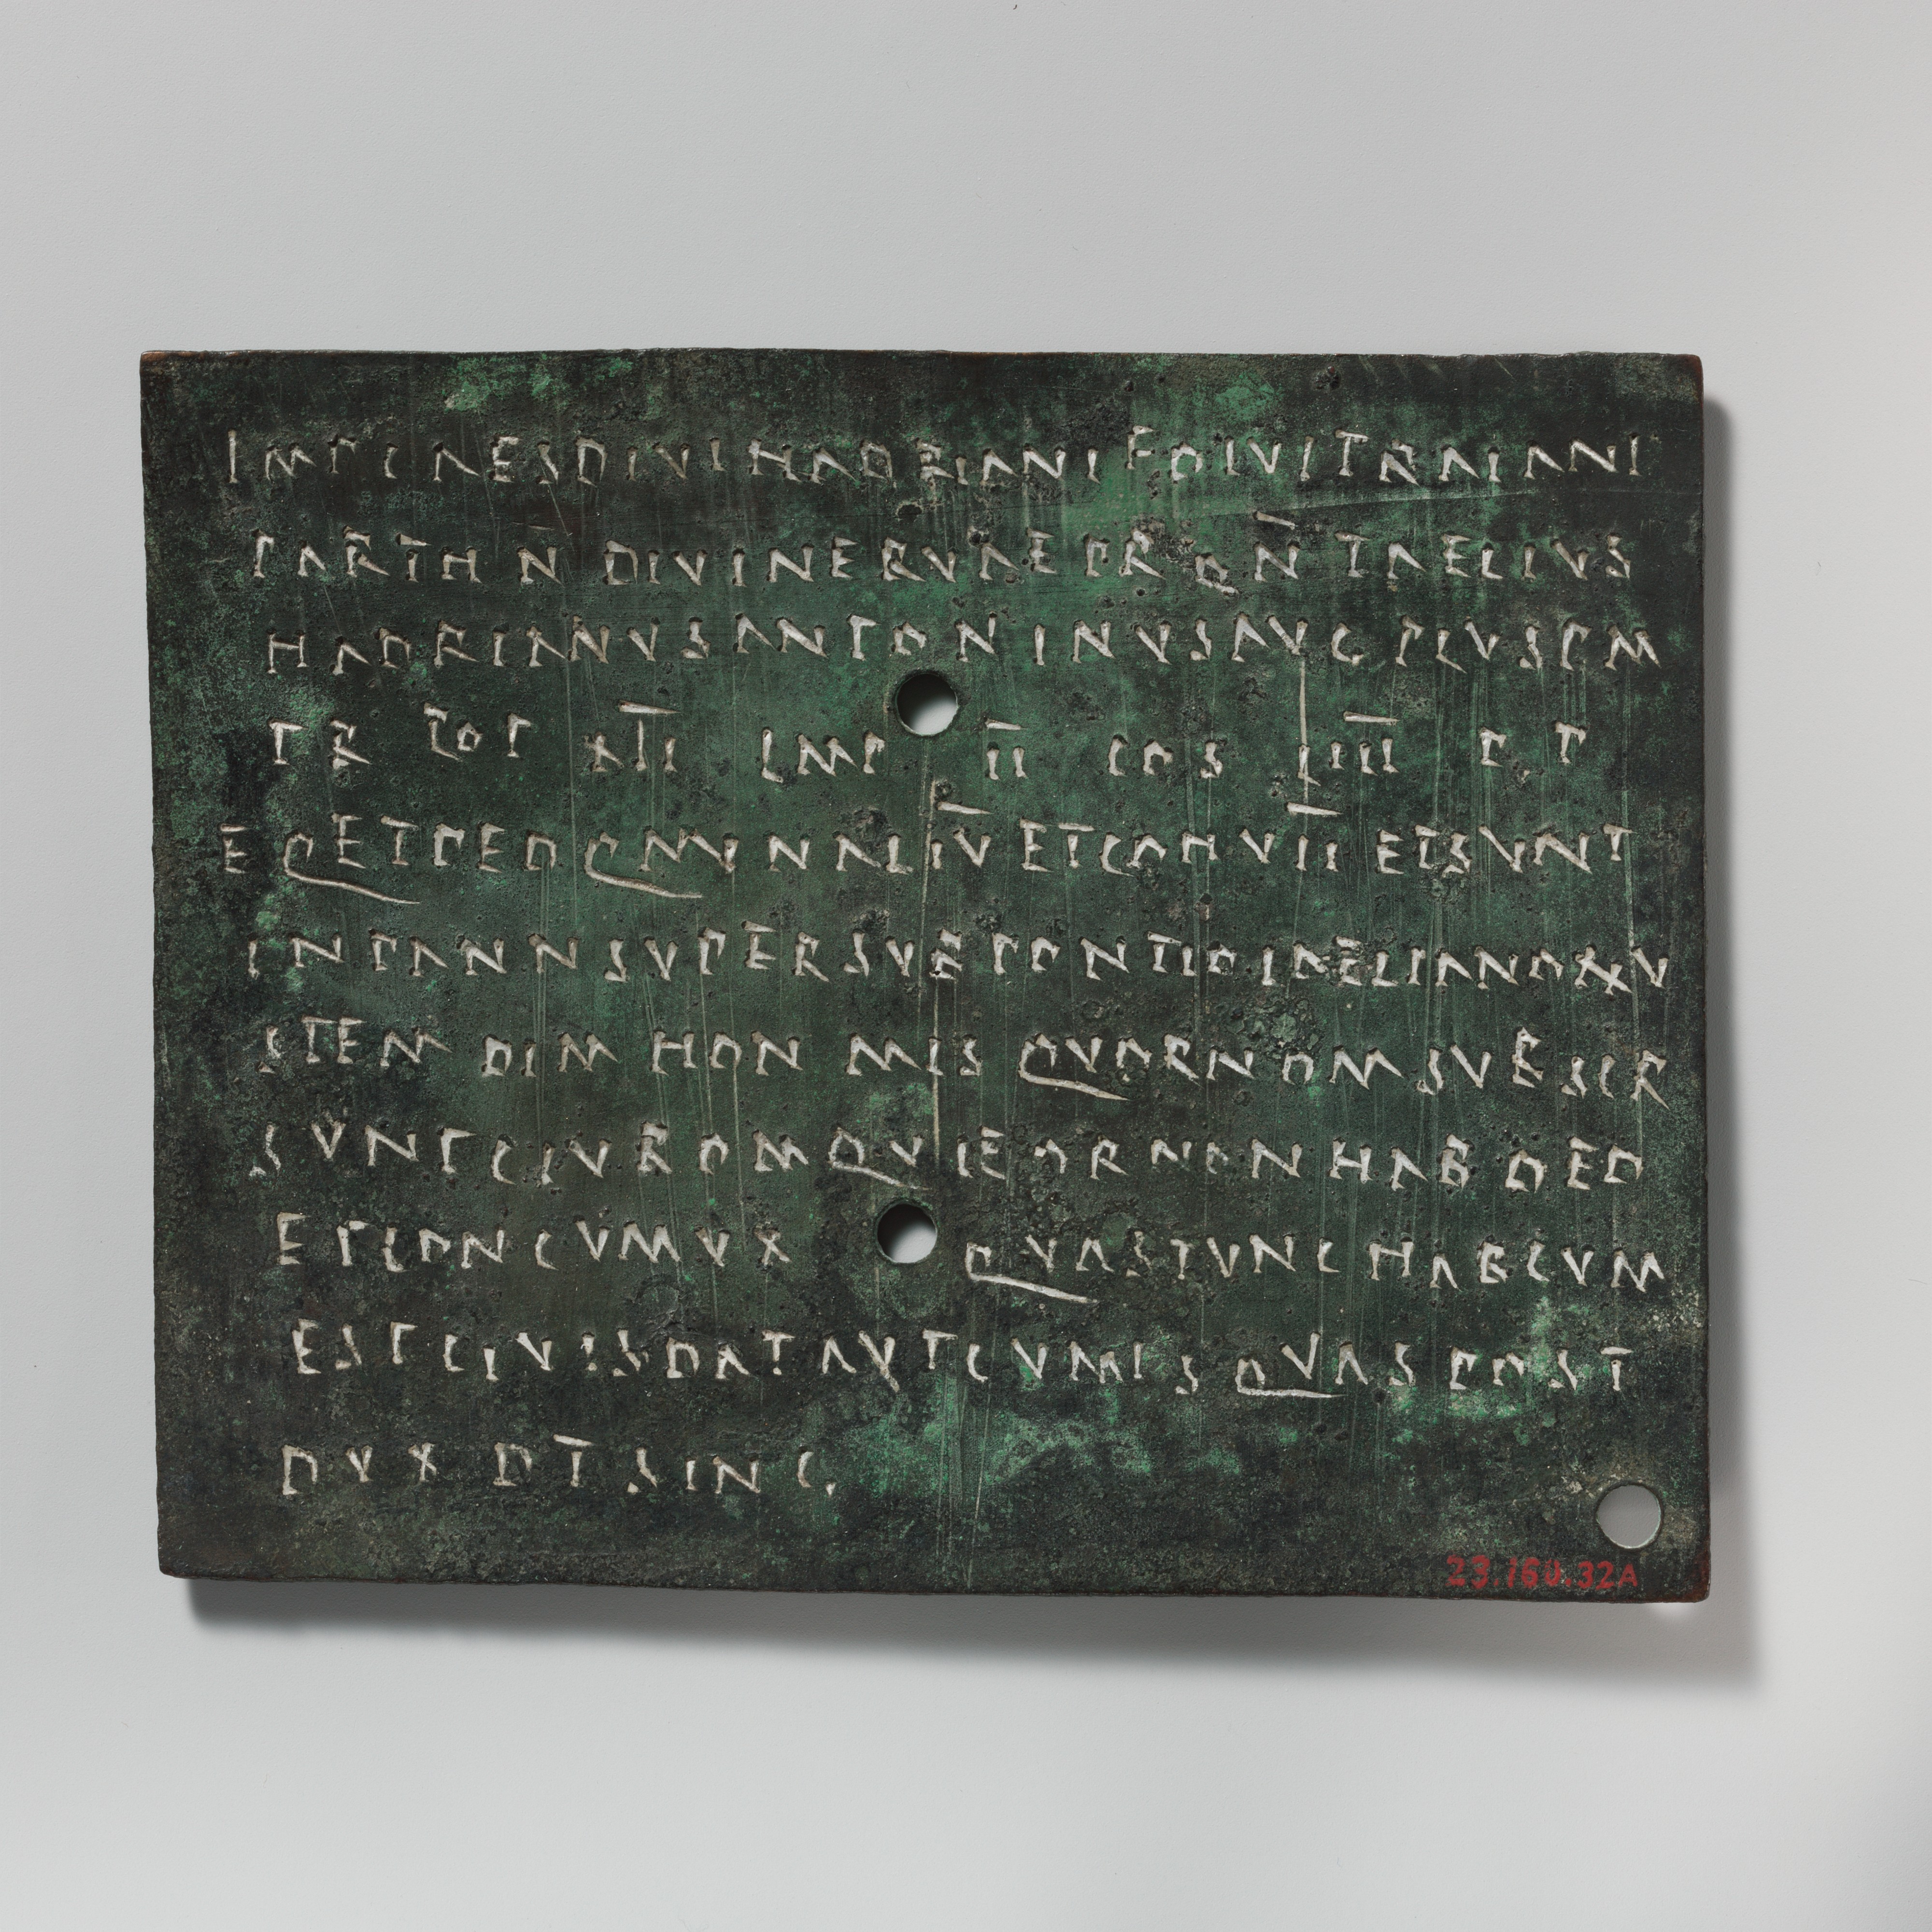 IMP CAES DIVI HADRIANI F DIVI TRAIANI
PARTH N DIVI NERVAE PR ON T AELIUS
HADRIANVS ANTONINVS AVG PIVS P M
TR POT XII IMP II COS IIII P P
EQ ET PED Q M IN AL IV ET COH VII ET SVNT
IN PANN SVPER SVB PONTIO LAELIANO XXV
ITEM DIM HON MIS QVOR NOM SVB SCR
SVNT CIV ROM QVI EOR NON HAB DED
ET CON CVM VX QVAS TVNC HAB CVM
EST CIV IS DAT AVT CVM IS QVAS POST
DVX DT SING
23.160.32A